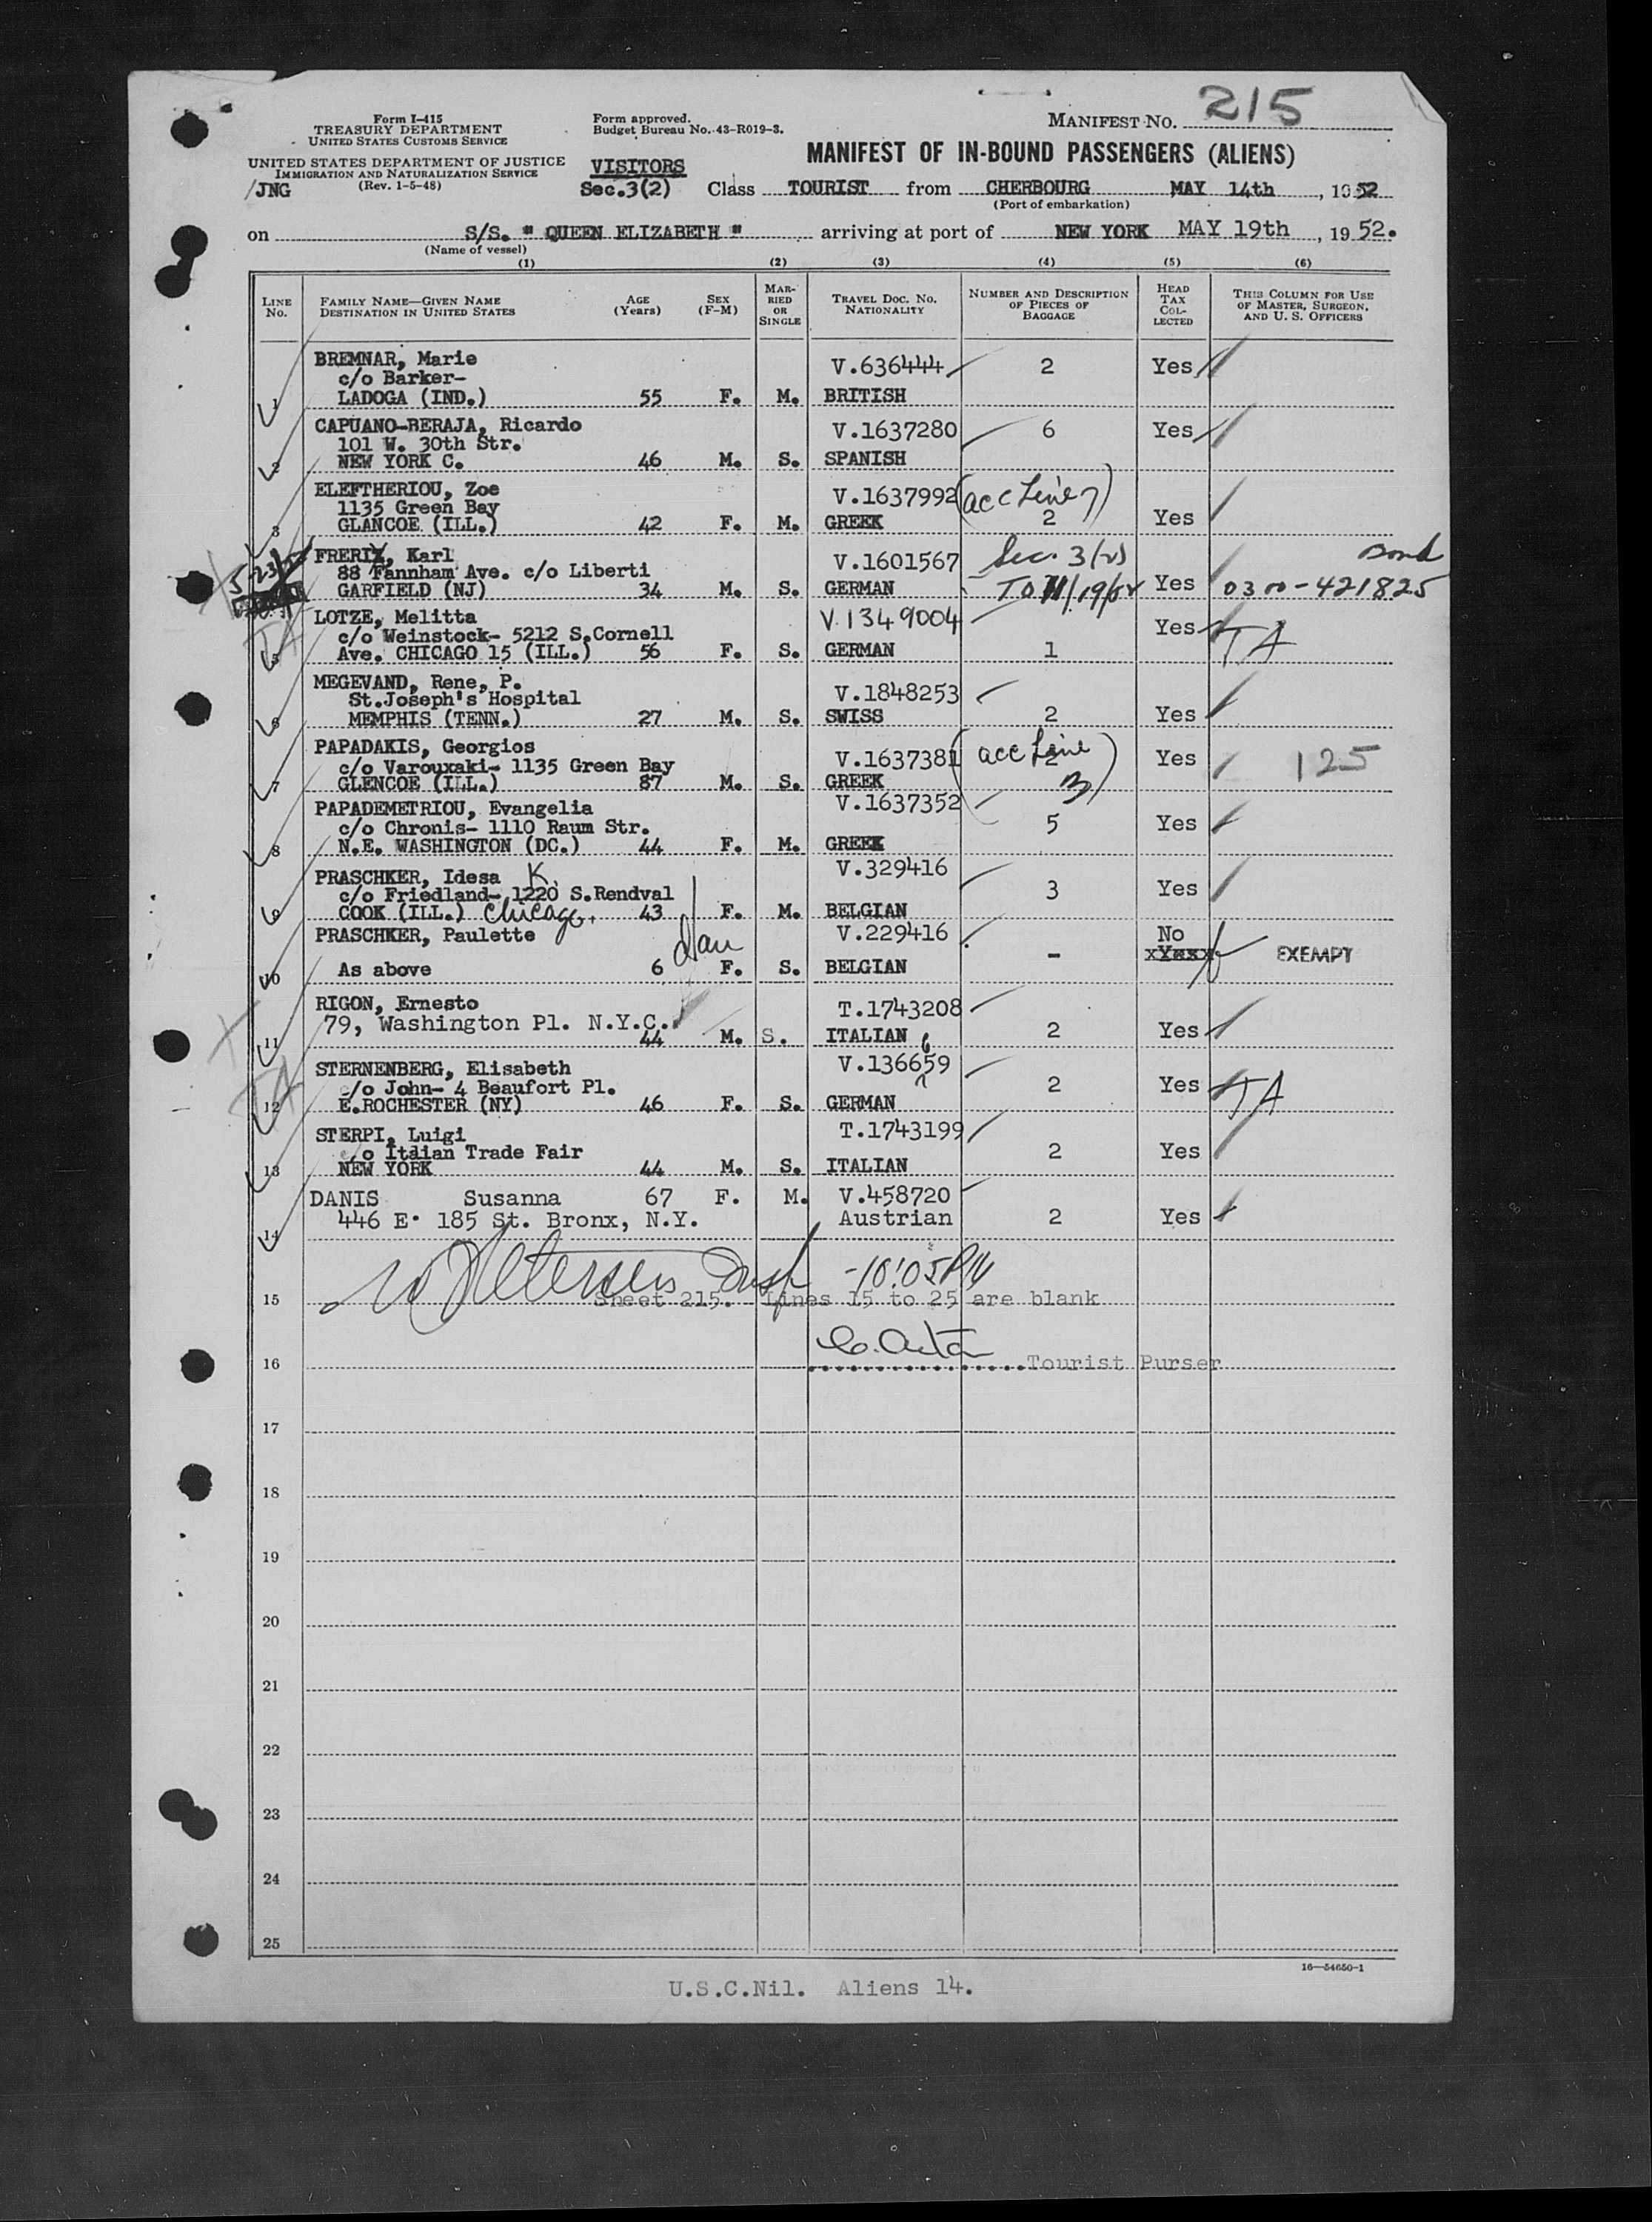 215
Form I-415
TREASURY DEPARTMENT
UNITED STATES CUSTOMS SERVICE
UNITED STATES DEPARTMENT OF JUSTICE
IMMIGRATION AND NATURALIZATION SERVICE
(Rev. 1-5-48)
/JNG
Form approved.
Budget Bureau No. 43-R019-3.
MANIFEST NO.
MANIFEST OF IN-BOUND PASSENGERS (ALIENS)
VISITORS
Sec.3(2) Class TOURIST from CHERBOURG MAY 14th, 1952
(Port of embarkation)
on S/S. " QUEEN ELIZABETH " arriving at port of NEW YORK MAY 19th, 1952.
(Name of vessel)
(1) (2) (3) (4) (5) (6)
LINE NO. FAMILY NAME—GIVEN NAME DESTINATION IN UNITED STATES AGE (Years) SEX (F-M) MARRIED OR SINGLE TRAVEL DOC. NO. NATIONALITY NUMBER AND DESCRIPTION OF PIECES OF BAGGAGE HEAD TAX COLLECTED THIS COLUMN FOR USE OF MASTER, SURGEON, AND U. S. OFFICERS
BREMNAR, Marie V.636444 2 Yes
c/o Barker-
1 LADOGA (IND.) 55 F. M. BRITISH
CAPUANO-BERAJA, Ricardo V.1637280 6 Yes
101 W. 30th Str.
2 NEW YORK C. 46 M. S. SPANISH
ELEFTHERIOU, Zoe V.1637992 (acc Line 7)
1135 Green Bay
3 GLANCOE (ILL.) 42 F. M. GREEK 2 Yes
FRERIX, Karl V.1601567 Sec. 3(2) Bond
88 Fannham Ave. c/o Liberti
5-23/52 GARFIELD (NJ) 34 M. S. GERMAN TO 11/19/52 Yes 0300-421825
LOTZE, Melitta V.1349004 Yes TA
c/o Weinstock- 5212 S.Cornell
TA 5 Ave. CHICAGO 15 (ILL.) 56 F. S. GERMAN 1
MEGEVAND, Rene, P. V.1848253
St.Joseph's Hospital
6 MEMPHIS (TENN.) 27 M. S. SWISS 2 Yes
PAPADAKIS, Georgios V.1637381 (acc Line 3) 2 Yes 125
c/o Varouxaki- 1135 Green Bay
7 GLENCOE (ILL.) 87 M. S. GREEK
PAPADEMETRIOU, Evangelia V.1637352
c/o Chronis- 1110 Raum Str. 5 Yes
8 N.E. WASHINGTON (DC.) 44 F. M. GREEK
PRASCHKER, Idesa K. V.329416
c/o Friedland- 1220 S.Rendval 3 Yes
9 COOK (ILL.) Chicago. 43 F. M. BELGIAN
PRASCHKER, Paulette dau V.229416 No
xYesx EXEMPT
10 As above 6 F. S. BELGIAN -
RIGON, Ernesto T.1743208
79, Washington Pl. N.Y.C.
11 44 M. S. ITALIAN 2 Yes
STERNENBERG, Elisabeth V.136659 6
c/o John- 4 Beaufort Pl. 2 Yes TA
TA 12 E.ROCHESTER (NY) 46 F. S. GERMAN
STERPI, Luigi T.1743199
c/o Italian Trade Fair 2 Yes
13 NEW YORK 44 M. S. ITALIAN
DANIS Susanna 67 F. M. V.458720
446 E. 185 St. Bronx, N.Y. Austrian 2 Yes
14
Petersen Insp -10:05 PM
15 Sheet 215. Lines 15 to 25 are blank
16 Tourist Purser
17
18
19
20
21
22
23
24
25
16—54650-1
U.S.C.Nil. Aliens 14.